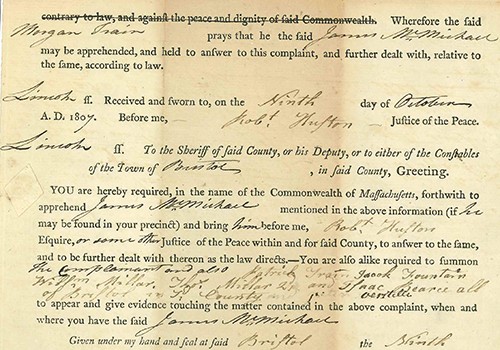 contrary to law, and against the peace and dignity of said Commonwealth. Wherefore the said
Morgan Train prays that he the said James McMichael
may be apprehended, and held to answer to this complaint, and further dealt with, relative to
the same, according to law.
Lincoln ss. Received and sworn to, on the Ninth day of October
A. D. 1807. Before me, — Robt. Huston — Justice of the Peace.
Lincoln ss. To the Sheriff of said County, or his Deputy, or to either of the Constables
of the Town of Bristol , in said County, Greeting.
YOU are hereby required, in the name of the Commonwealth of Massachusetts, forthwith to
apprehend James McMichael mentioned in the above information (if he
may be found in your precinct) and bring him before me, Robt. Huston
Esquire, or some other Justice of the Peace within and for said County, to answer to the same,
and to be further dealt with thereon as the law directs.—You are also alike required to summon
the complainant and also Patrick Train Jacob Fountain
William Millar, Millar and Isaac Bearce all
of Bristol in County and
to appear and give evidence touching the matter contained in the above complaint, when and
where you have the said James McMichael
Given under my hand and seal at said Bristol the Ninth